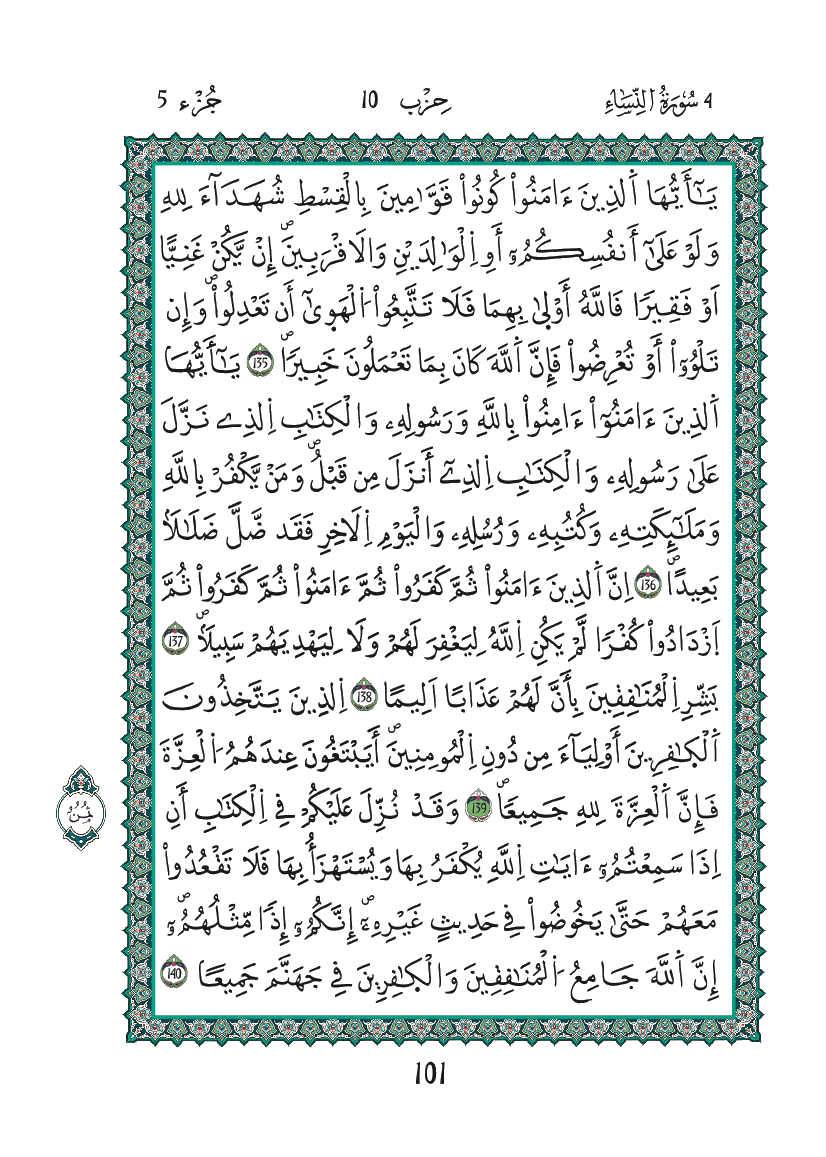 4 سُورَةُ النِّسَاءِ
حِزْب 10
جُزْء 5
يَٰٓأَيُّهَا اَ۬لذِينَ ءَامَنُواْ كُونُواْ قَوَّٰمِينَ بِالْقِسْطِ شُهَدَآءَ لِلهِ
وَلَوْ عَلَىٰٓ أَنفُسِكُمُۥٓ أَوِ اِ۬لْوَٰلِدَيْنِ وَالَاقْرَبِينَۖ إِنْ يَّكُنْ غَنِيًّا
اَوْ فَقِيرًا فَاللَّهُ أَوْلَىٰ بِهِمَا فَلَا تَتَّبِعُواْ اُ۬لْهَوَىٰٓ أَن تَعْدِلُواْۖ وَإِن
تَلْوُۥٓاْ أَوْ تُعْرِضُواْ فَإِنَّ اَ۬للَّهَ كَانَ بِمَا تَعْمَلُونَ خَبِيرًاۖ 135 يَٰٓأَيُّهَا
اَ۬لذِينَ ءَامَنُوٓاْ ءَامِنُواْ بِاللَّهِ وَرَسُولِهِۦ وَالْكِتَٰبِ اِ۬لذِے نَزَّلَ
عَلَىٰ رَسُولِهِۦ وَالْكِتَٰبِ اِ۬لذِےٓ أَنزَلَ مِن قَبْلُۖ وَمَنْ يَّكْفُرْ بِاللَّهِ
وَمَلَٰٓئِكَتِهِۦ وَكُتُبِهِۦ وَرُسُلِهِۦ وَالْيَوْمِ اِ۬لَاخِرِ فَقَد ضَّلَّ ضَلَٰلَاۢ
بَعِيدًاۖ 136 اِنَّ اَ۬لذِينَ ءَامَنُواْ ثُمَّ كَفَرُواْ ثُمَّ ءَامَنُواْ ثُمَّ كَفَرُواْ ثُمَّ
اَ۪زْدَادُواْ كُفْرًا لَّمْ يَكُنِ اِ۬للَّهُ لِيَغْفِرَ لَهُمْ وَلَا لِيَهْدِيَهُمْ سَبِيلًاۖ 137
بَشِّرِ اِ۬لْمُنَٰفِقِينَ بِأَنَّ لَهُمْ عَذَابًا اَلِيمًا 138 اِ۬لذِينَ يَتَّخِذُونَ
اَ۬لْكَٰفِرِينَ أَوْلِيَآءَ مِن دُونِ اِ۬لْمُومِنِينَۖ أَيَبْتَغُونَ عِندَهُمُ اُ۬لْعِزَّةَ
فَإِنَّ اَ۬لْعِزَّةَ لِلهِ جَمِيعًاۖ 139 وَقَدْ نُزِّلَ عَلَيْكُمْ فِے اِ۬لْكِتَٰبِ أَنِ
اِذَا سَمِعْتُمُۥٓ ءَايَٰتِ اِ۬للَّهِ يُكْفَرُ بِهَا وَيُسْتَهْزَأُ بِهَا فَلَا تَقْعُدُواْ
مَعَهُمْ حَتَّىٰ يَخُوضُواْ فِے حَدِيثٍ غَيْرِهِۦٓۖ إِنَّكُمُۥٓ إِذًا مِّثْلُهُمُۥٓۖ
إِنَّ اَ۬للَّهَ جَامِعُ اُ۬لْمُنَٰفِقِينَ وَالْكَٰفِرِينَ فِے جَهَنَّمَ جَمِيعًا 140
ثُمُنُ
101